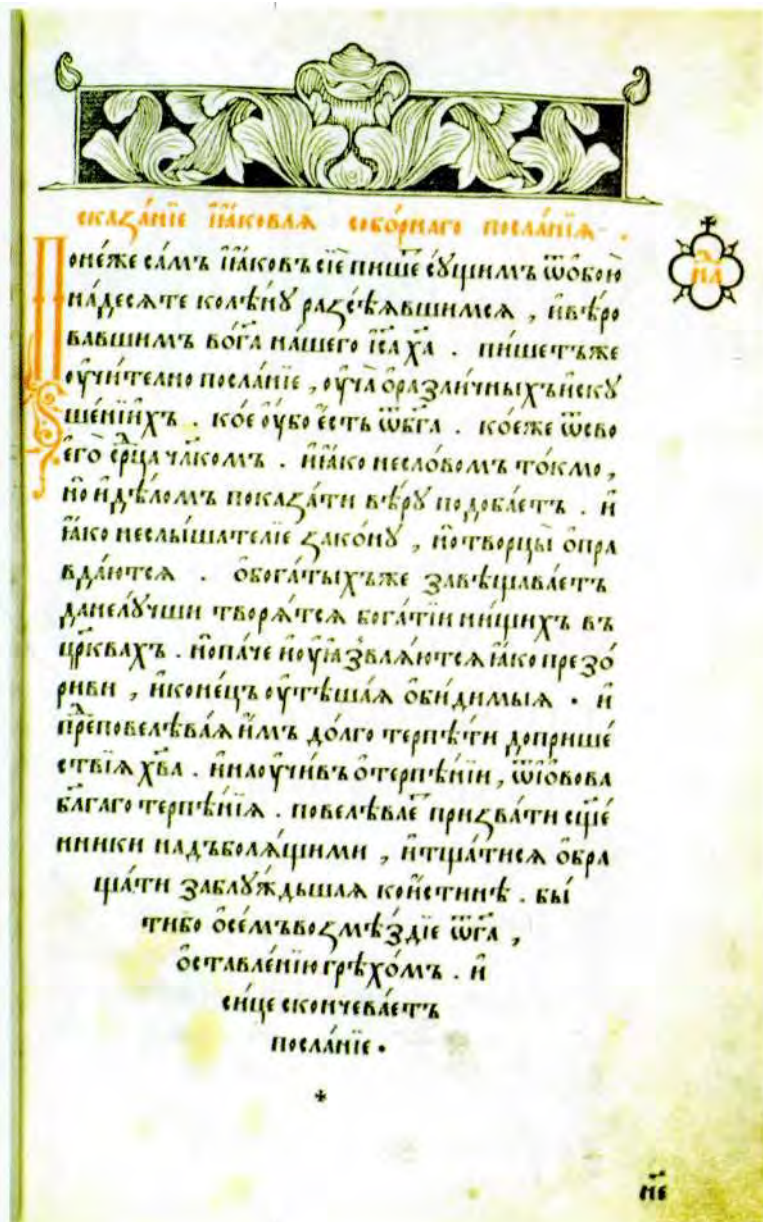 сказа́нїе і҆а́ковлѧ собо́рнаго посла́нїѧ .
н҃д
Поне́же са́мъ і҆а́ковъ сїѐ пи́шеⷮ сꙋ́щимъ ѿѻ҆бою̀
на́десѧте колѣ́нꙋ разсѣ́ѧвшимсѧ , и҆вѣ́ро
вавшимъ во́г҃а на́шего і҆с҃а х҃а . пи́шетъже
оу҆чи́телно посла́нїе , оу҆ча̀ ѻ҆разли́чныхъ и҆скꙋ
ше́нїихъ . ко́е оу҆́бо є҆́сть ѿб҃га . ко́еже ѿсво
его̀ср҃ца чл҃комъ . и҆ꙗ҆́ко несло́вомъ то́кмо ,
но̀ и҆дѣ́ломъ показа́ти вѣ́рꙋ подоба́етъ . и҆
ꙗ҆́ко неслы́шателїе зако́нꙋ , но̀творцы̀ ѻ҆пра
вда́ютсѧ . ѻ҆бога́тыхъже завѣщава́етъ
данелꙋ́чши творѧ́тсѧ бога́тїи ни́щихъ въ
цр҃квахъ . но̀па́че и҆оу҆ꙗ҆звлѧ́ютсѧ ꙗ҆́ко презо́
риви , и҆коне́цъ оу҆тѣша́ѧ ѻ҆би́димыѧ . и҆
преⷣповелѣва́ѧ и҆̀мъ до́лго терпѣ́ти доприше́
ствїѧ х҃ва . и҆наоу҆чи́въ ѻ҆терпѣ́нїи , ѿі҆́овова
бл҃гаго терпѣ́нїѧ . повелѣва́еⷮ призва́ти сщ҃е
нники надъболѧ́щими , и҆тща́тисѧ ѻ҆бра
ща́ти заблꙋ́ждьшаѧ кои҆́стинѣ . бы́
тибо ѻ҆се́мъвозмѣ́здїе ѿг҃а ,
ѻ҆ставле́нїю грѣхо́мъ . и҆
си́це скончева́етъ
посла́нїе .
н҃е